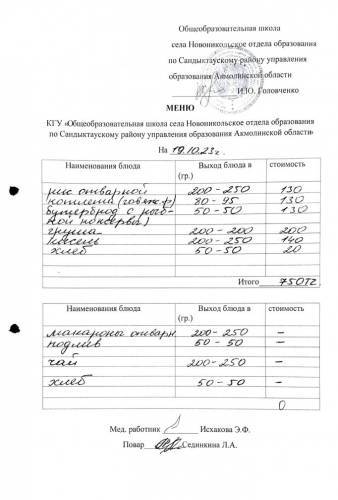 Общеобразовательная школа
села Новоникольское отдела образования
по Сандыктаускому району управления
образования Акмолинской области
И.Ю. Головченко
МЕНЮ
КГУ «Общеобразовательная школа села Новоникольское отдела образования
по Сандыктаускому району управления образования Акмолинской области»
На 19.10.23г.
Наименования блюда Выход блюда в (гр.) стоимость
рис отварной 200-250 130
котлета (говяж.р) 80-95 130
бутерброд с рыб- 50-50 130
ной консервы)
груша 200-200 200
кисель 200-250 140
хлеб 50-50 20
Итого 750тг.
Наименования блюда Выход блюда в (гр.) стоимость
макароны отварн. 200-250 -
подлив 50-50 -
чай 200-250 -
хлеб 50-50 -
0
Мед. работник Исхакова Э.Ф.
Повар Сединкина Л.А.